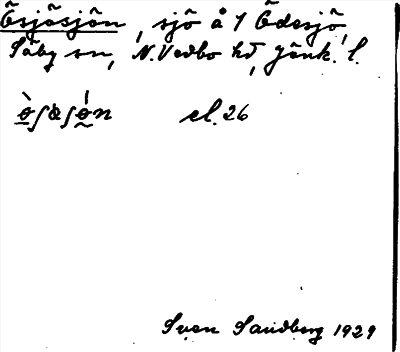 Ösjösjön, sjö å 1 Ödesjö,
Säby sn, N. Vedbo hd, Jönk. l.
el. 26
Sven Sandberg 1929